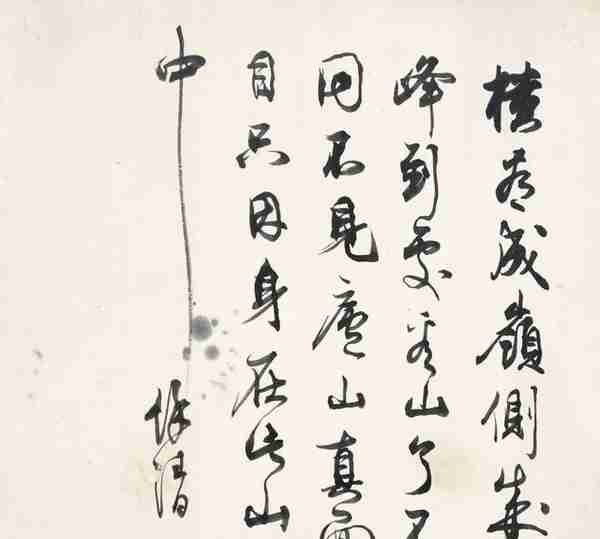 橫看成嶺側成
峰到處看山了不
同不見廬山真面
目只因身在此山
中